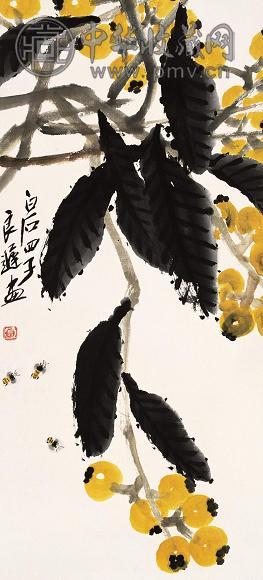 中华收藏网
www.pmv.cn
白石四子
良迟画